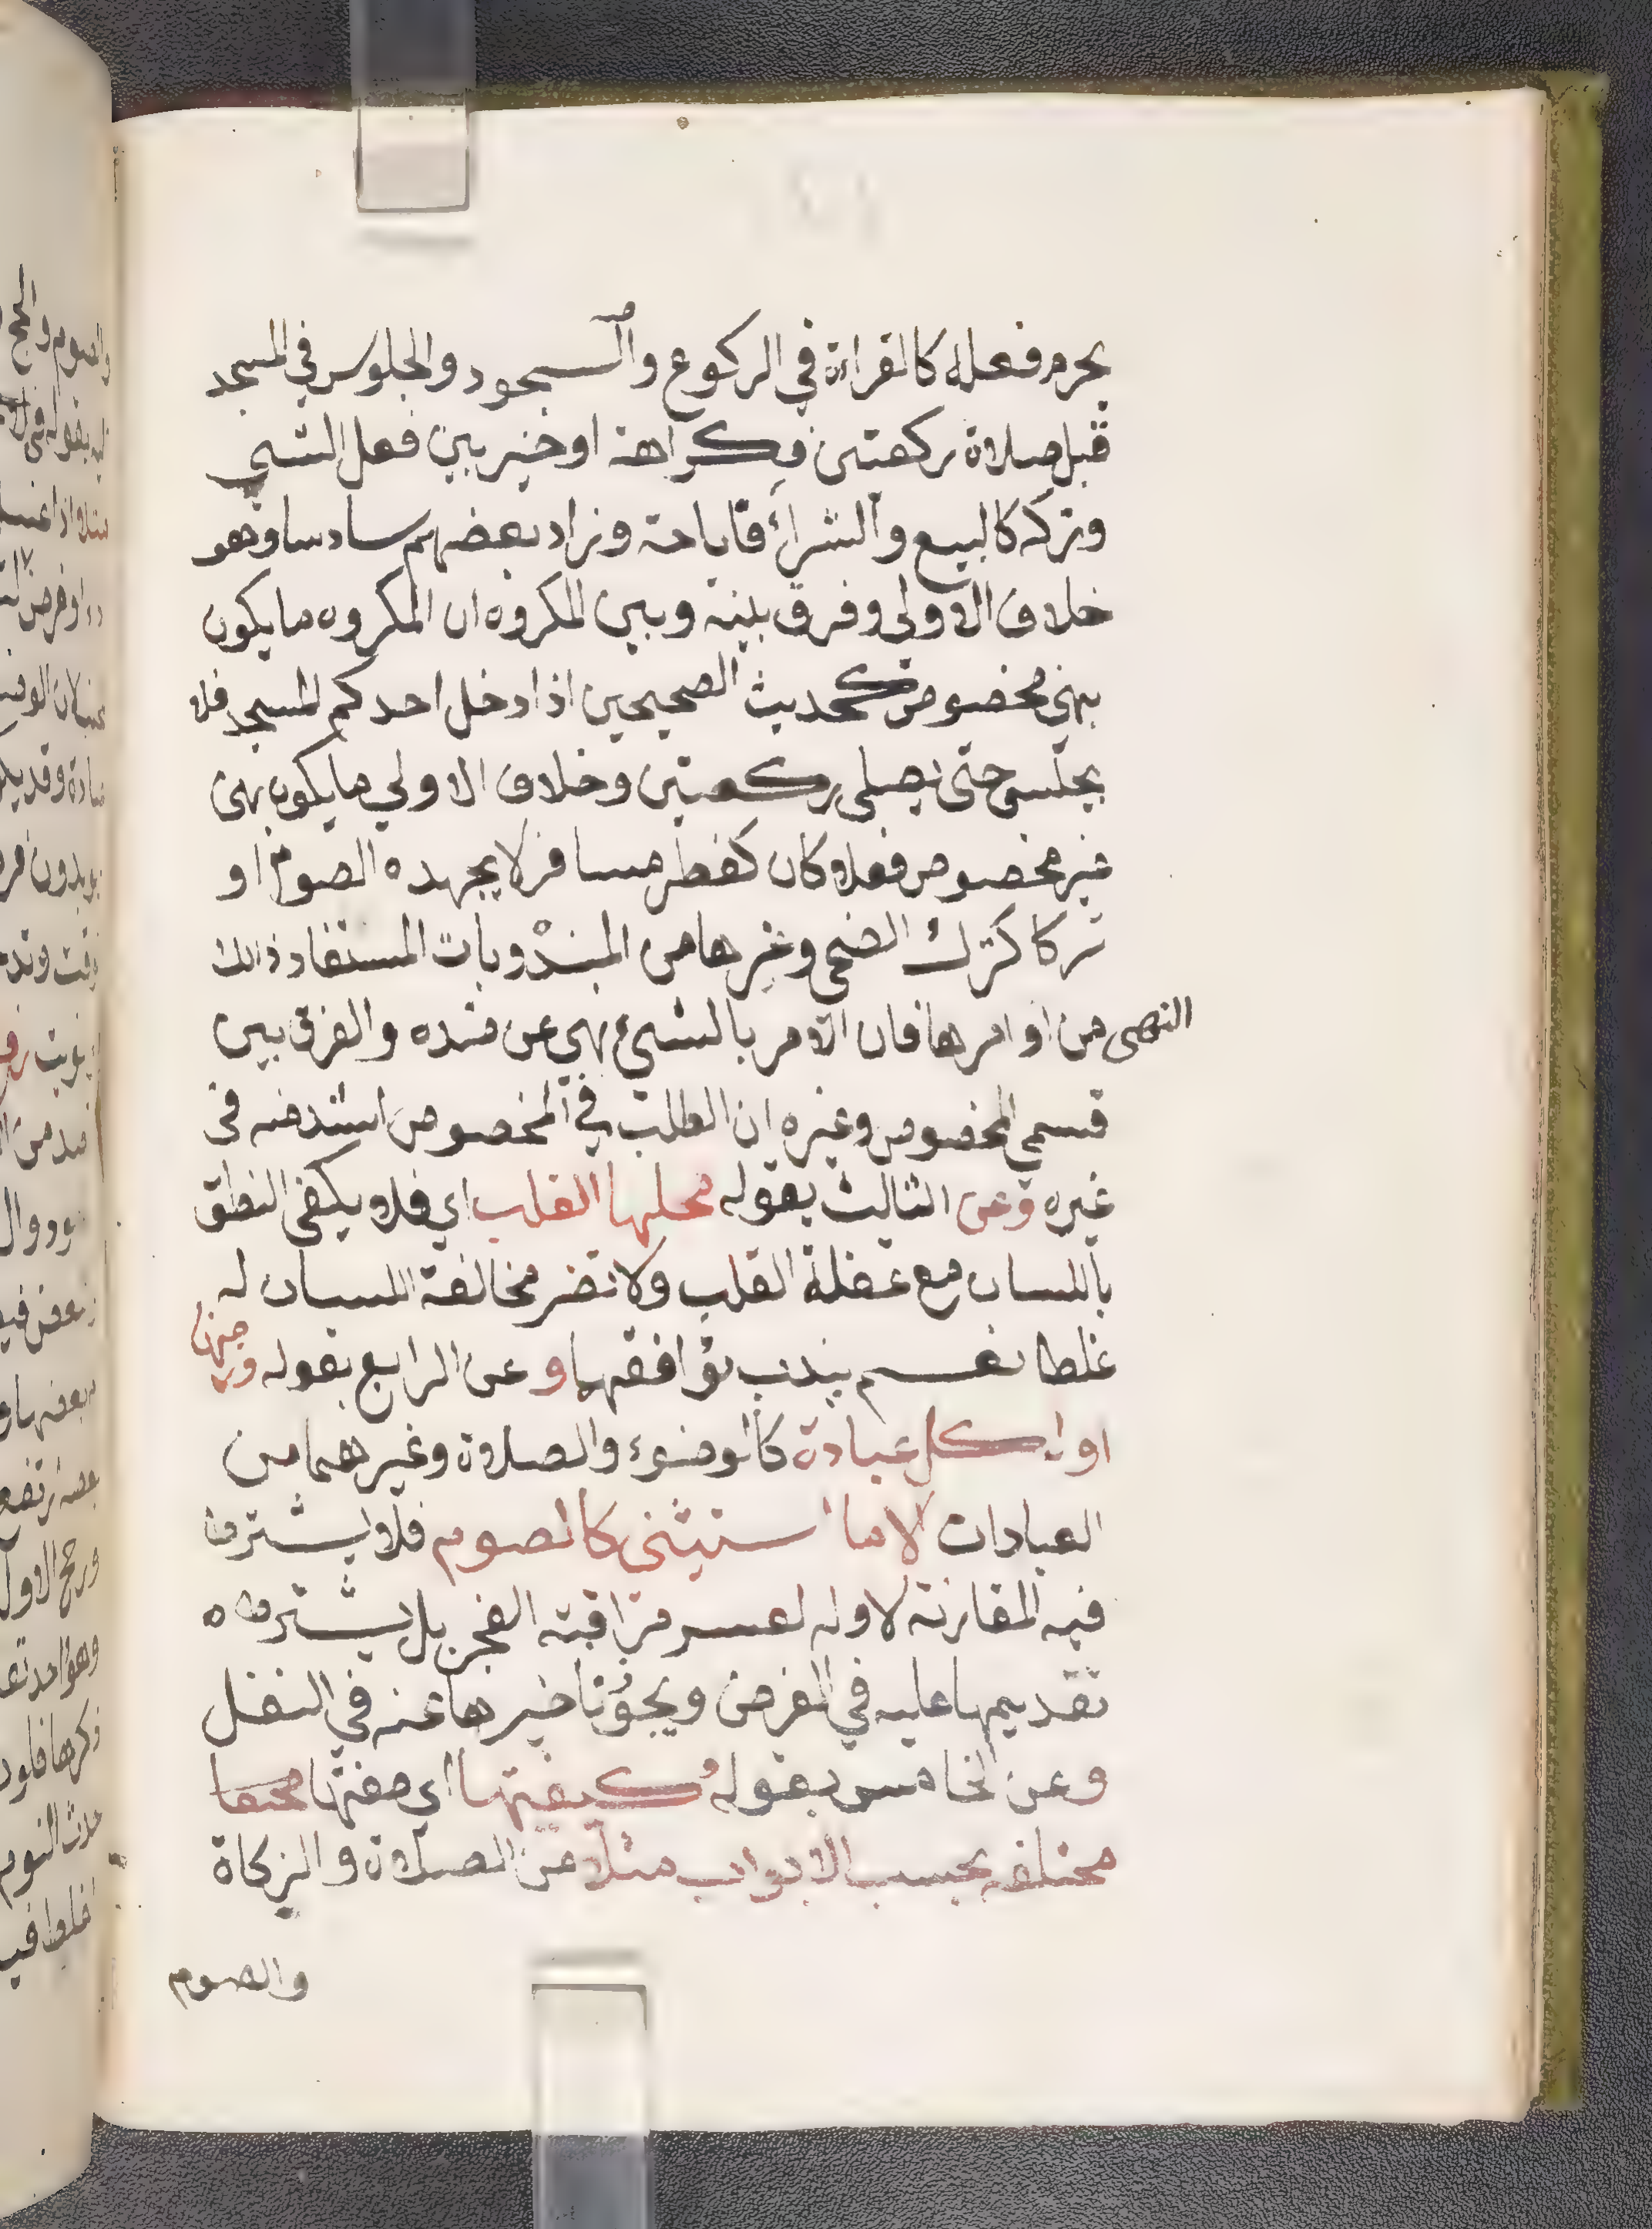 يحرم فعله كالقراءة في الركوع والسجود والجلوس في المسجد
قبل صلاة ركعتين فكراهة او خير بين فعل الشي
وتركه كالبيع والشراء فاباحة وزاد بعضهم سادسا وهو
خلاف الاولى وفرق بينه وبين المكروه ان المكروه ما يكون
بنهي مخصوص كحديث الصحيحين اذا دخل احدكم المسجد فلا
يجلس حتى يصلي ركعتين وخلاف الاولي ما يكون بنهي
غير مخصوص فعلا كان كفطر مسافر لا يجهده الصوم او
تركا كترك الضحى وغيرها من المندوبات المستفاد ذالك
النهي من اوامرها فان الامر بالشيء نهي عن ضده والفرق بين
قسمي المخصوص وغيره ان الطلب في المخصوص اشد منه في
غيره وعن الثالث بقوله محلها القلب اي فلا يكفي النطق
باللسان مع غفلة القلب ولا تضر مخالفة اللسان له
غلطا نعم يندب توافقهما وعن الرابع بقوله وزمنها
اول كل عبادة كالوضوء والصلاة وغيرهما من
العبادات لا ما استثنى كالصوم فلا يشترط
فيه المقارنة لاوله لعسر مراقبة الفجر بل يشترط
تقديمها عليه في الفرض ويجوز تاخيرها عنه في النفل
وعن الخامس بقوله وكيفيتها اي صفتها
مختلفه بحسب الابواب مثلا من الصلاة والزكاة
والصوم